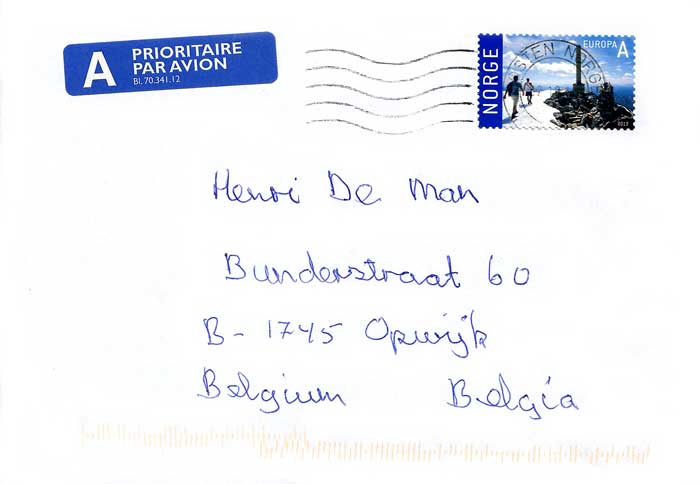 A PRIORITAIRE
PAR AVION
Bl. 70.341.12
NORGE
EUROPA A
STEN NORGE
2012
Henri De Man
Bunderstraat 60
B- 1745 Opwijk
Belgium Belgia